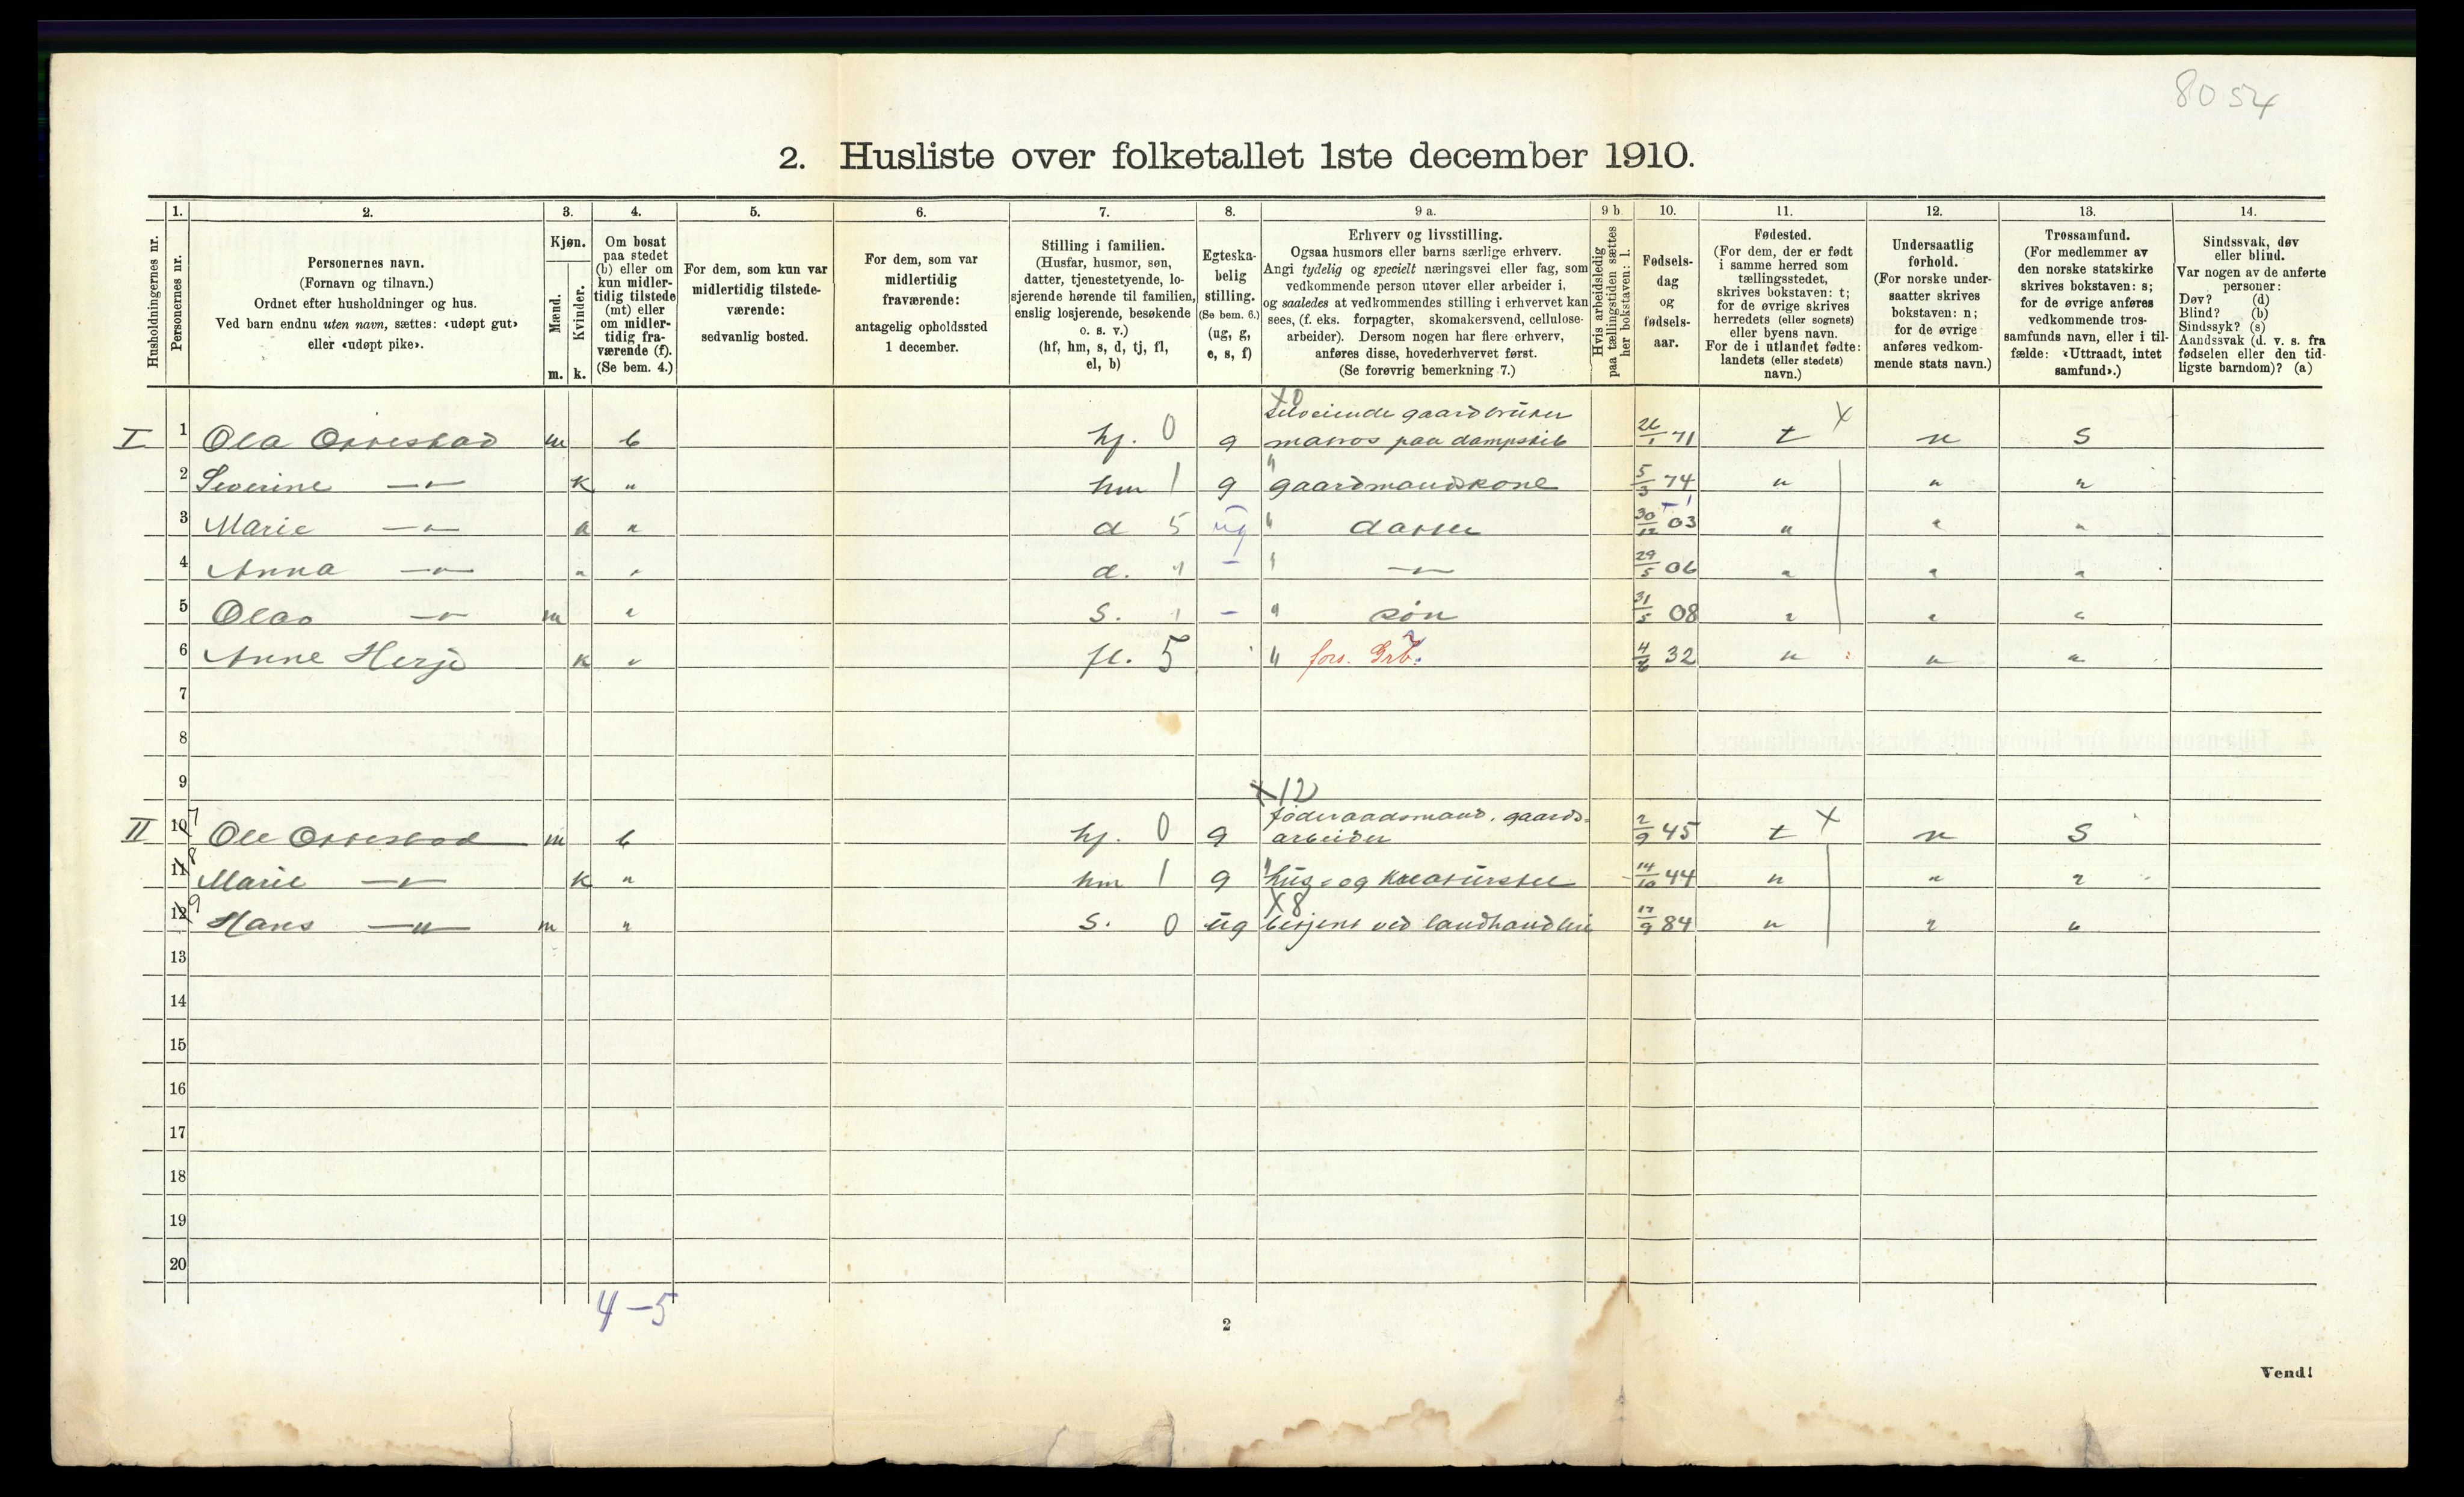 8054
2. Husliste over folketallet 1ste december 1910.
Husholdningernes nr.
1.
Personernes nr.
2.
Personernes navn.
(Fornavn og tilnavn.)
Ordnet efter husholdninger og hus.
Ved barn endnu uten navn, sættes: «udøpt gut»
eller «udøpt pike».
3.
Kjøn.
Mænd.
Kvinder.
m. k.
4.
Om bosat
paa stedet
(b) eller om
kun midler-
tidig tilstede
(mt) eller
om midler-
tidig fra-
værende (f).
(Se bem. 4.)
5.
For dem, som kun var
midlertidig tilstede-
værende:
sedvanlig bosted.
6.
For dem, som var
midlertidig
fraværende:
antagelig opholdssted
1 december.
7.
Stilling i familien.
(Husfar, husmor, søn,
datter, tjenestetyende, lo-
sjerende hørende til familien,
enslig losjerende, besøkende
o. s. v.)
(hf, hm, s, d, tj, fl,
el, b)
8.
Egteska-
belig
stilling.
(Se bem. 6.)
(ug, g,
e, s, f)
9 a.
Erhverv og livsstilling.
Ogsaa husmors eller barns særlige erhverv.
Angi tydelig og specielt næringsvei eller fag, som
vedkommende person utøver eller arbeider i,
og saaledes at vedkommendes stilling i erhvervet kan
sees, (f. eks. forpagter, skomakersvend, cellulose-
arbeider). Dersom nogen har flere erhverv,
anføres disse, hovederhvervet først.
(Se forøvrig bemerkning 7.)
9 b
Hvis arbeidsledig
paa tællingstiden sættes
her bokstaven: l.
10.
Fødsels-
dag
og
fødsels-
aar.
11.
Fødested.
(For dem, der er født
i samme herred som
tællingsstedet,
skrives bokstaven: t;
for de øvrige skrives
herredets (eller sognets)
eller byens navn.
For de i utlandet fødte:
landets (eller stedets)
navn.)
12.
Undersaatlig
forhold.
(For norske under-
saatter skrives
bokstaven: n;
for de øvrige
anføres vedkom-
mende stats navn.)
13.
Trossamfund.
(For medlemmer av
den norske statskirke
skrives bokstaven: s;
for de øvrige anføres
vedkommende tros-
samfunds navn, eller i til-
fælde: «Uttraadt, intet
samfund».)
14.
Sindssvak, døv
eller blind.
Var nogen av de anførte
personer:
Døv? (d)
Blind? (b)
Sindssyk? (s)
Aandssvak (d. v. s. fra
fødselen eller den tid-
ligste barndom)? (a)
X0
selveiende gaardbruker
I 1 Ola Orrestad m b hf. 0 g matros paa dampskib 26/1 71 t X n S
2 Severine —"— k " hm 1 g " gaardmandskone 5/3 74 " " "
3 Marie —"— " " d 5 ug " datter 30/12 03 " " "
4 Anna —"— " " d. " – " —"— 29/5 06 " " "
5 Olav —"— m " s. " – " søn 31/5 08 " " "
6 Anne Herjo k " fl. 5 " fors. 4/6 32 " " "
7
8
9
X12
føderaadsmand, gaards-
II 10 7 Ole Orrestad m b hf. 0 g arbeider 2/9 45 t X n S
11 8 Marie —"— k " hm 1 g " hus- og kreaturstel 14/10 44 " " "
X8
12 9 Hans —"— m " s. 0 ug betjent ved landhandleri 17/9 84 " " "
13
14
15
16
17
18
19
20
4–5
2
Vend!